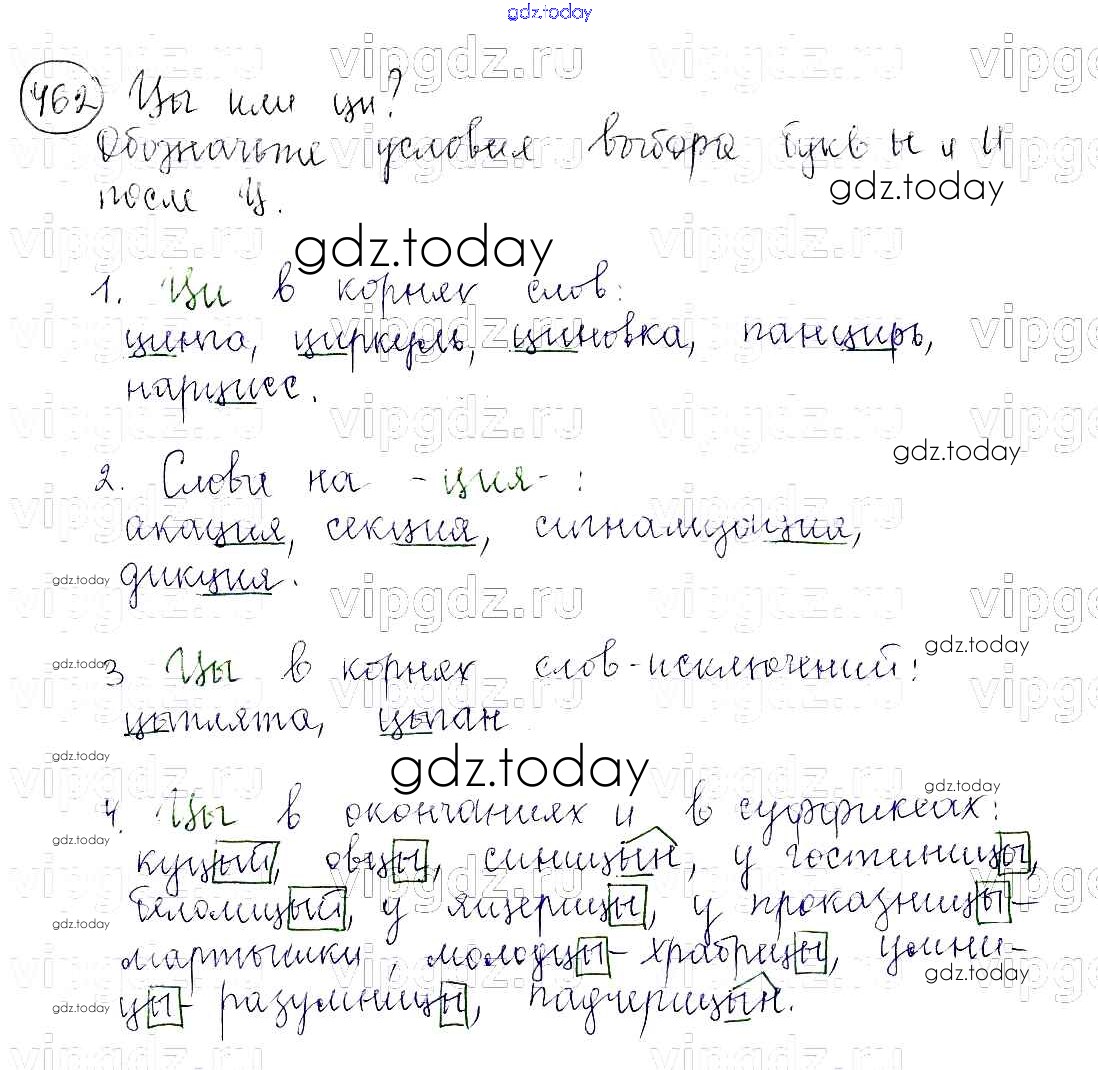 gdz.today
462 Цы или ци?
Обозначьте условия выбора букв Ы и И
после Ц.
gdz.today
gdz.today
1. Ци в корнях слов:
цинга, циркуль, циновка, панцирь,
нарцисс.
gdz.today
2. Слова на -ция-:
акация, секция, сигнализация,
дикция.
gdz.today
gdz.today
gdz.today
3 Цы в корнях слов-исключений:
цыплята, цыган
gdz.today
gdz.today
gdz.today
4. Цы в окончаниях и в суффиксах:
gdz.today
куцый, овцы, синицын, у гостиницы,
gdz.today
белолицый, у ящерицы, у проказницы-
gdz.today
gdz.today
мартышки, молодцы-храбрецы, умни-
gdz.today
gdz.today
цы-разумницы, падчерицын.
vipgdz.ru